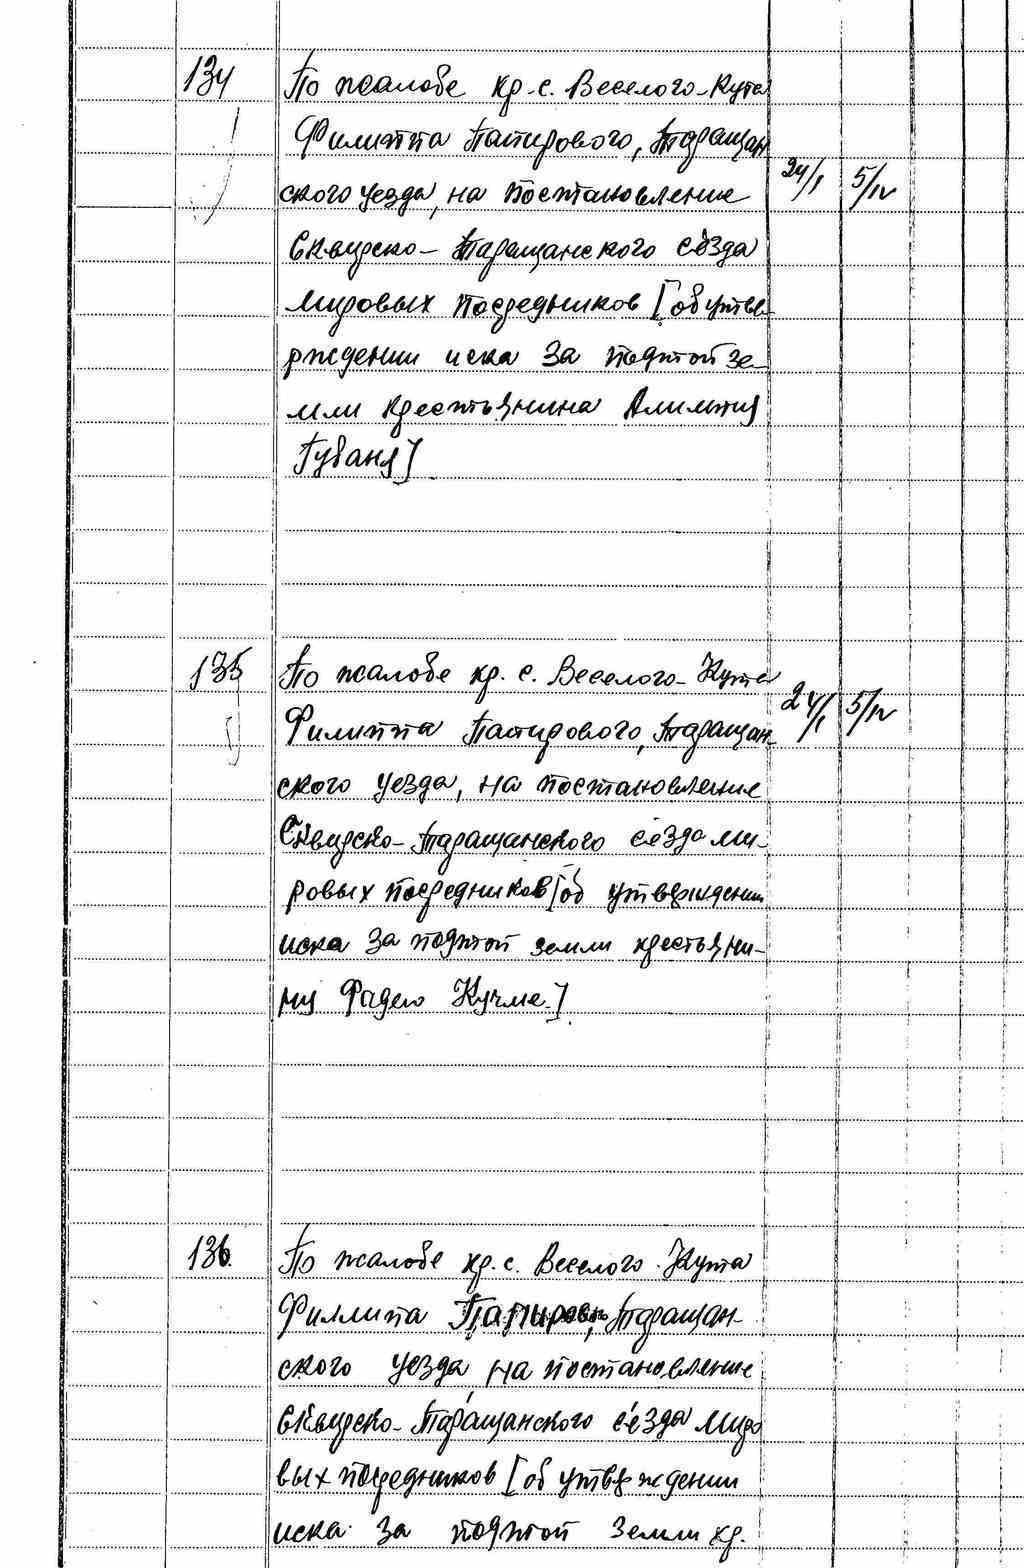 134 По жалобе кр. с. Веселого-Кута
Филиппа Папирового, Таращан
ского уезда, на постановление
24/I 5/IV
Сквирско-Таращанского с'езда
мировых посредников [об утве-
рждении иска за
зе-
мли крестьянина
Губаня]
135 По жалобе кр. с. Веселого-Кута
Филиппа Папирового, Таращан-
24/I 5/IV
ского уезда, на постановление
Сквирско-Таращанского с'езда ми-
ровых посредников [об утверждении
иска за земли крестьяни-
ну Фадею Кучме.]
136. По жалобе кр. с. Веселого-Кута
Филлипа Таращан-
ского уезда, на постановление
Сквирско-Таращанского с'езда миро
вых посредников [об утверждении
иска за земли кр.